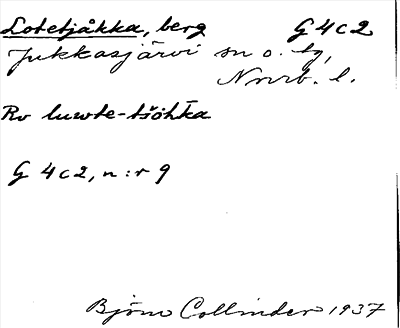 Lotetjåkka, berg G 4 c 2
Jukkasjärvi sn o. tg,
Norrb. l.
Rv luwte-tšohka
G 4 c 2, n:r 9
Björn Collinder 1937